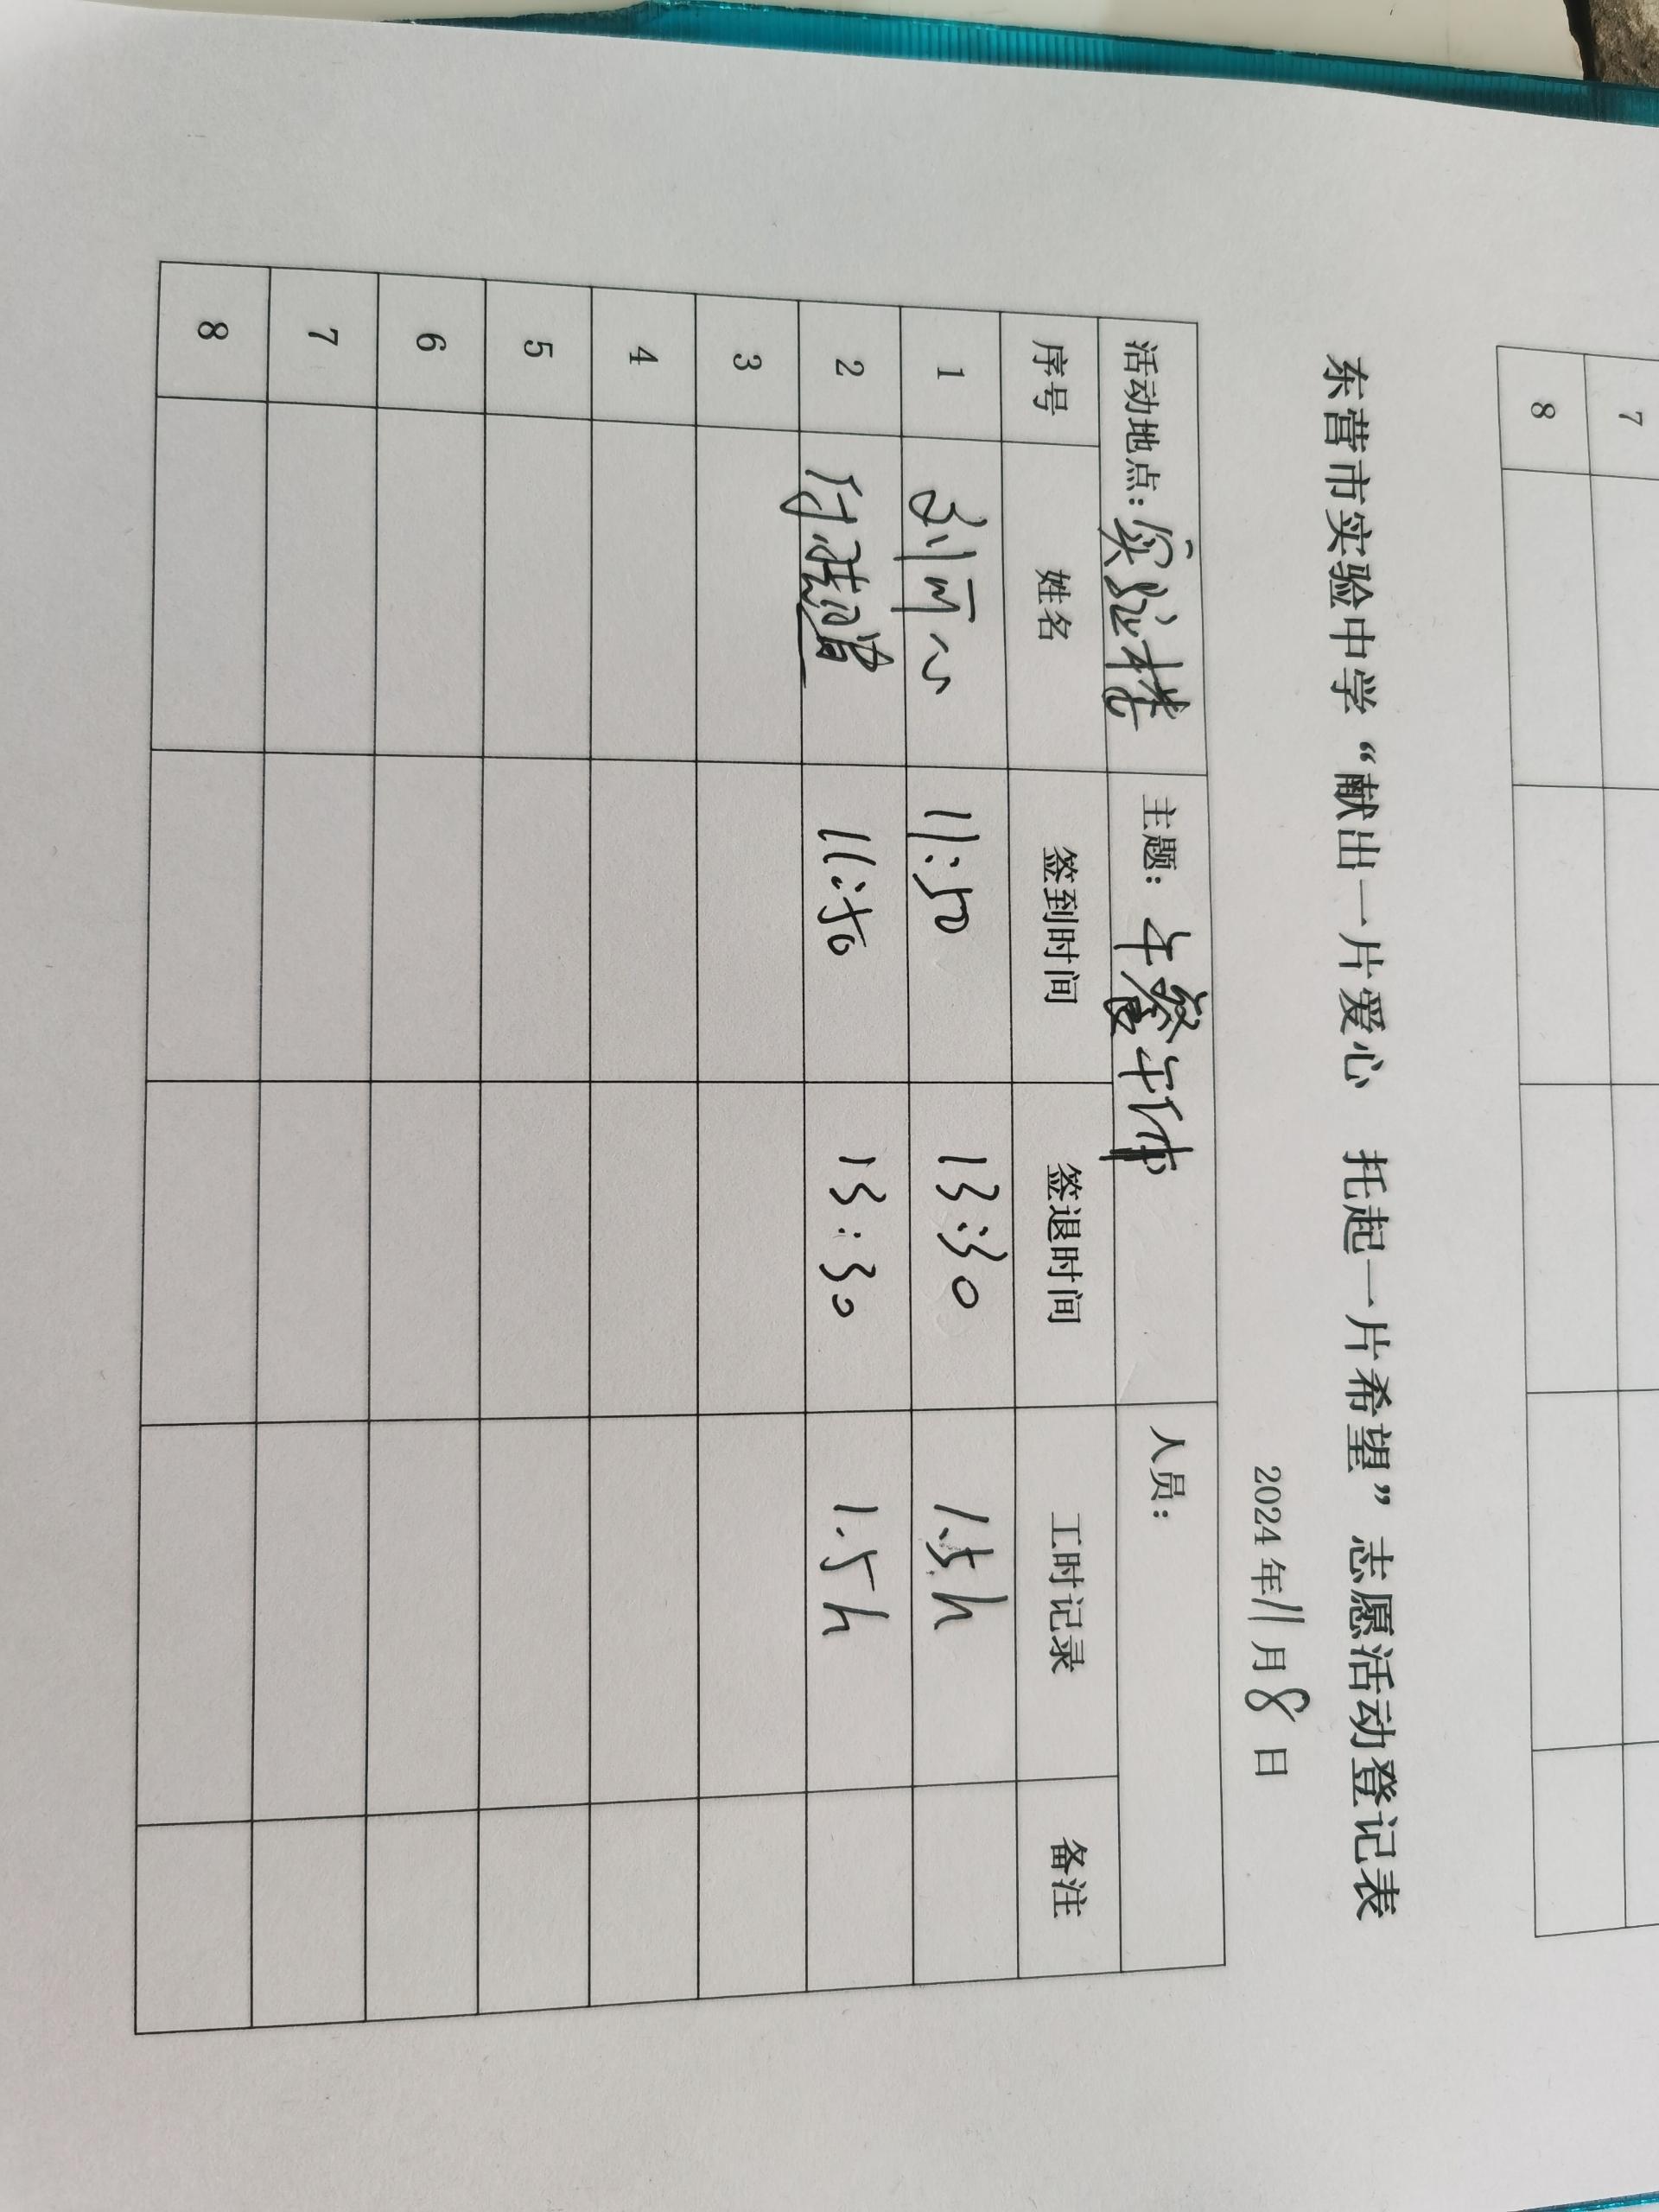 7
8
东营市实验中学“献出一片爱心 托起一片希望”志愿活动登记表
2024年11月8日
活动地点：实验楼 主题：午餐午休 人员：
序号 姓名 签到时间 签退时间 工时记录 备注
1 刘可心 11:50 13:30 1.5h
2 付 11:50 13:30 1.5h
3
4
5
6
7
8